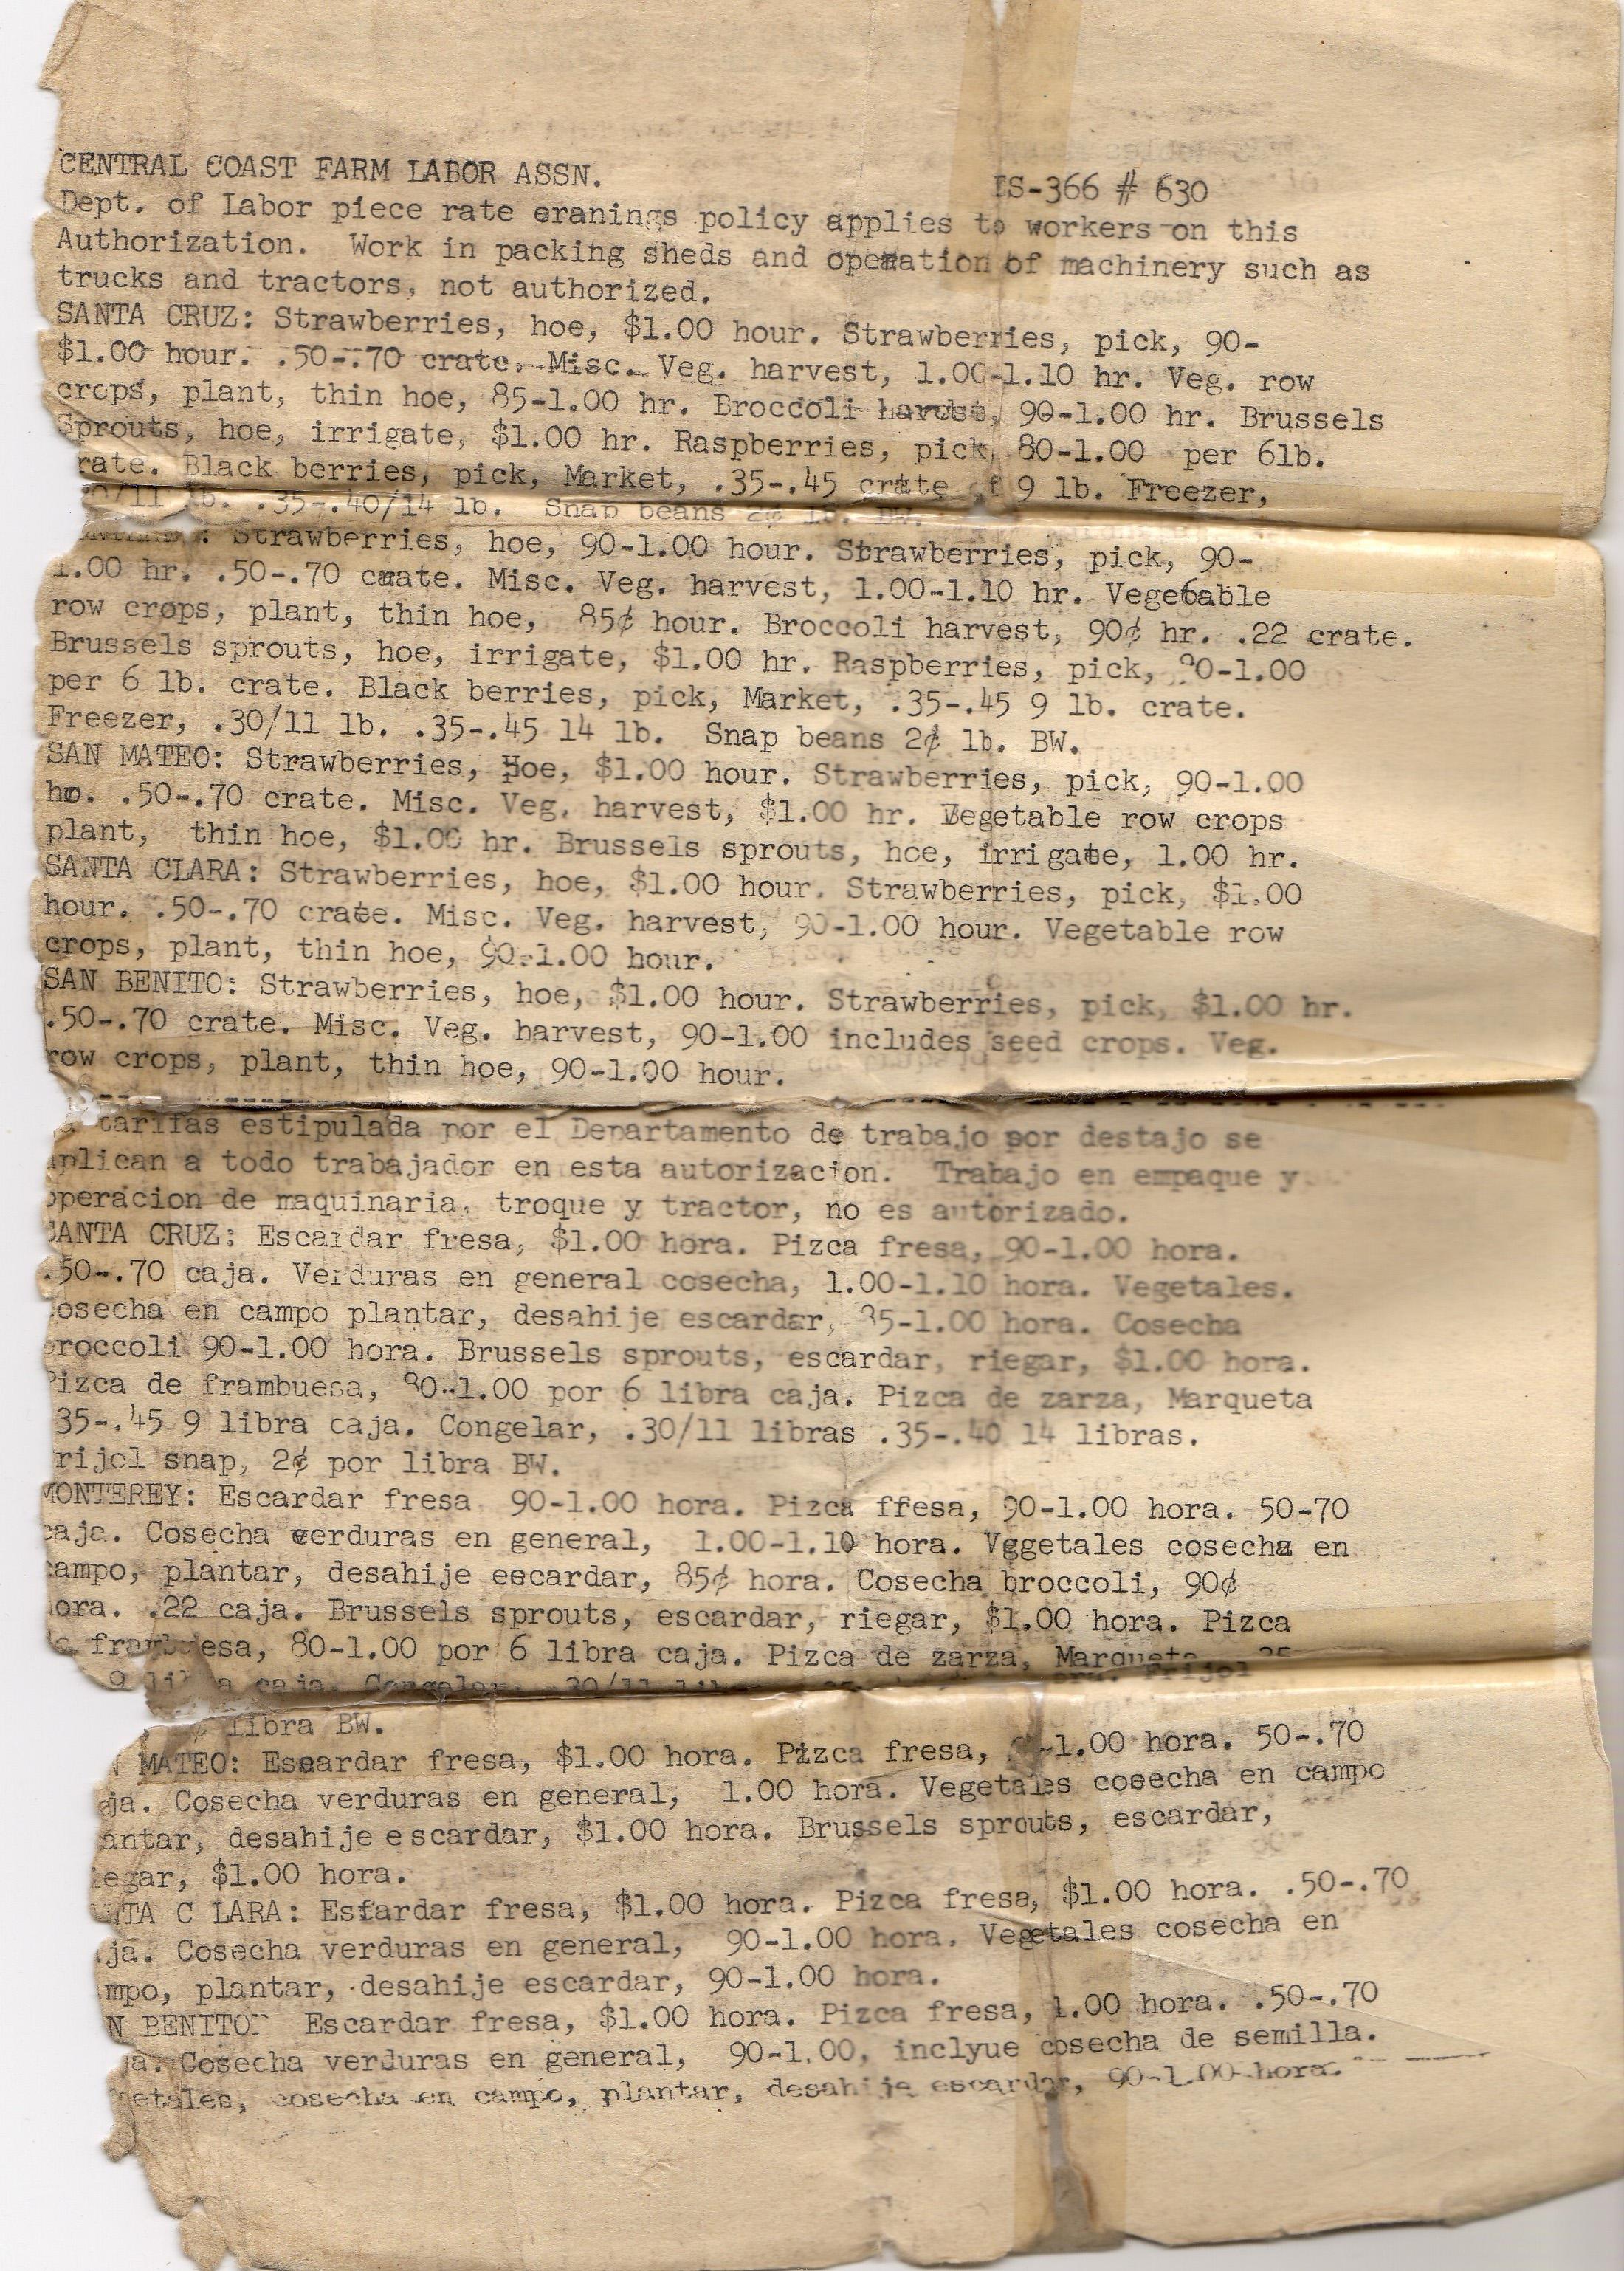 CENTRAL COAST FARM LABOR ASSN.
ES-366 # 630
Dept. of Labor piece rate eranings policy applies to workers on this
Authorization. Work in packing sheds and operation of machinery such as
trucks and tractors, not authorized.
SANTA CRUZ: Strawberries, hoe, $1.00 hour. Strawberries, pick, 90-
$1.00 hour. .50-.70 crate. Misc. Veg. harvest, 1.00-1.10 hr. Veg. row
crops, plant, thin hoe, 85-1.00 hr. Broccoli 90-1.00 hr. Brussels
Sprouts, hoe, irrigate, $1.00 hr. Raspberries, pick, 80-1.00 per 6lb.
rate. Black berries, pick, Market, .35-.45 crate 9 lb. Freezer,
/11 lb. .35-.40/14 lb. Snap beans 2¢ lb. BW.
: Strawberries, hoe, 90-1.00 hour. Strawberries, pick, 90-
1.00 hr. .50-.70 crate. Misc. Veg. harvest, 1.00-1.10 hr. Vegetable
row crops, plant, thin hoe, 85¢ hour. Broccoli harvest, 90¢ hr. .22 crate.
Brussels sprouts, hoe, irrigate, $1.00 hr. Raspberries, pick, 80-1.00
per 6 lb. crate. Black berries, pick, Market, .35-.45 9 lb. crate.
Freezer, .30/11 lb. .35-.45 14 lb. Snap beans 2¢ lb. BW.
SAN MATEO: Strawberries, Hoe, $1.00 hour. Strawberries, pick, 90-1.00
hr. .50-.70 crate. Misc. Veg. harvest, $1.00 hr. Vegetable row crops
plant, thin hoe, $1.00 hr. Brussels sprouts, hoe, irrigate, 1.00 hr.
SANTA CLARA: Strawberries, hoe, $1.00 hour. Strawberries, pick, $1.00
hour. .50-.70 crate. Misc. Veg. harvest, 90-1.00 hour. Vegetable row
crops, plant, thin hoe, 90-1.00 hour.
SAN BENITO: Strawberries, hoe, $1.00 hour. Strawberries, pick, $1.00 hr.
.50-.70 crate. Misc. Veg. harvest, 90-1.00 includes seed crops. Veg.
row crops, plant, thin hoe, 90-1.00 hour.
tarifas estipulada por el Departamento de trabajo por destajo se
aplican a todo trabajador en esta autorizacion. Trabajo en empaque y
operacion de maquinaria, troque y tractor, no es autorizado.
SANTA CRUZ: Escardar fresa, $1.00 hora. Pizca fresa, 90-1.00 hora.
.50-.70 caja. Verduras en general cosecha, 1.00-1.10 hora. Vegetales.
cosecha en campo plantar, desahije escardar, 85-1.00 hora. Cosecha
broccoli 90-1.00 hora. Brussels sprouts, escardar, riegar, $1.00 hora.
Pizca de frambuesa, 80-1.00 por 6 libra caja. Pizca de zarza, Marqueta
35-.45 9 libra caja. Congelar, .30/11 libras .35-.40 14 libras.
rijol snap, 2¢ por libra BW.
MONTEREY: Escardar fresa 90-1.00 hora. Pizca fresa, 90-1.00 hora. 50-70
caja. Cosecha verduras en general, 1.00-1.10 hora. Vggetales cosecha en
campo, plantar, desahije escardar, 85¢ hora. Cosecha broccoli, 90¢
ora. .22 caja. Brussels sprouts, escardar, riegar, $1.00 hora. Pizca
frambuesa, 80-1.00 por 6 libra caja. Pizca de zarza, Marqueta
9 libra caja. Congelar, .30/11 Frijol
libra BW.
N MATEO: Escardar fresa, $1.00 hora. Pizca fresa, -1.00 hora. 50-.70
aja. Cosecha verduras en general, 1.00 hora. Vegetales cosecha en campo
antar, desahije escardar, $1.00 hora. Brussels sprouts, escardar,
iegar, $1.00 hora.
NTA C LARA: Esfardar fresa, $1.00 hora. Pizca fresa, $1.00 hora. .50-.70
ja. Cosecha verduras en general, 90-1.00 hora. Vegetales cosecha en
mpo, plantar, desahije escardar, 90-1.00 hora.
N BENITO: Escardar fresa, $1.00 hora. Pizca fresa, 1.00 hora. .50-.70
ja. Cosecha verduras en general, 90-1.00, inclyue cosecha de semilla.
etales, cosecha en campo, plantar, desahije escardar, 90-1.00 hora.